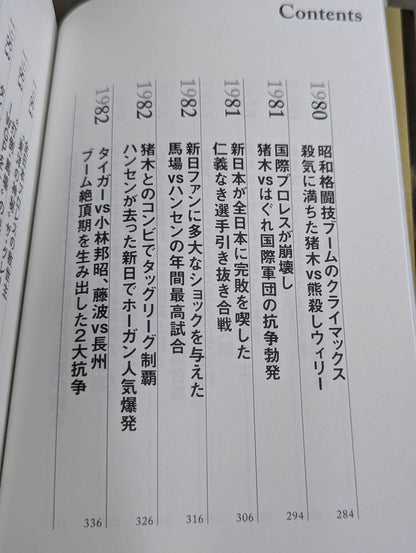 Contents
1980
昭和格闘技ブームのクライマックス
殺気に満ちた猪木vs熊殺しウィリー
284
1981
国際プロレスが崩壊し
猪木vsはぐれ国際軍団の抗争勃発
294
1981
新日本が全日本に完敗を喫した
仁義なき選手引き抜き合戦
306
1982
新日ファンに多大なショックを与えた
馬場vsハンセンの年間最高試合
316
1982
猪木とのコンビでタッグリーグ制覇
ハンセンが去った新日でホーガン人気爆発
326
1982
タイガーvs小林邦昭、藤波vs長州
ブーム絶頂期を生み出した2大抗争
336
1983